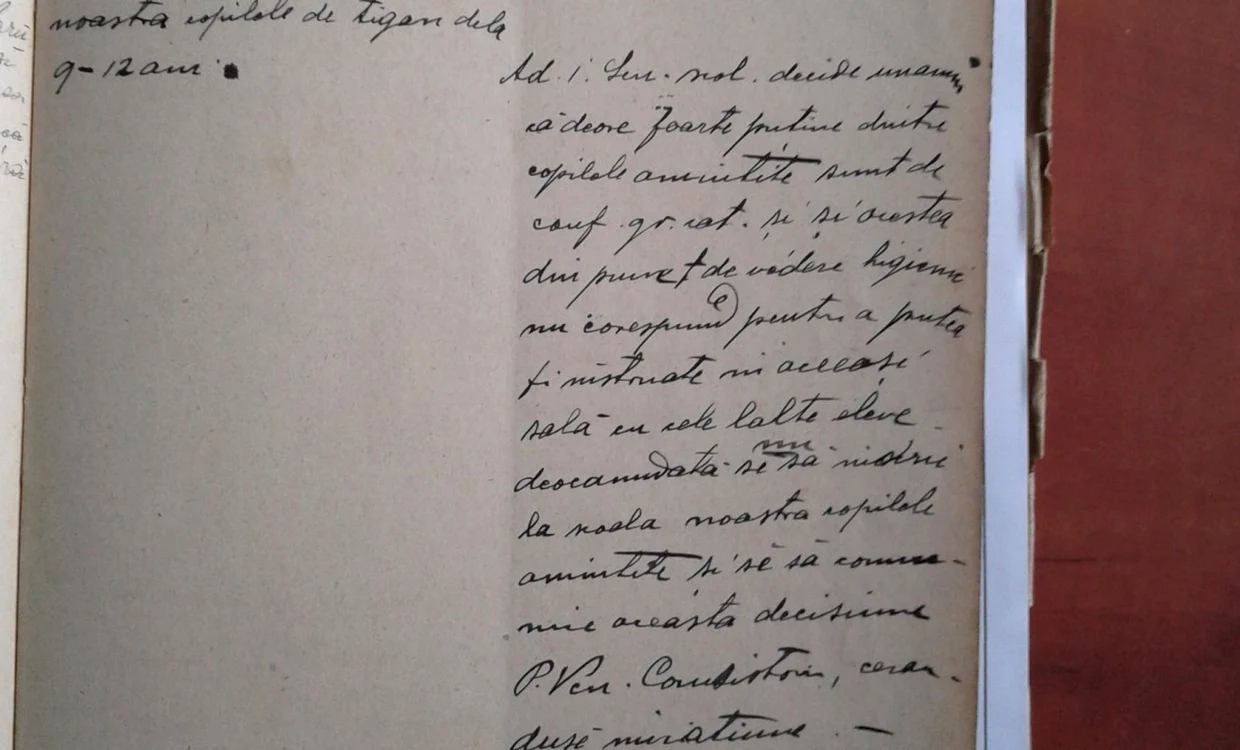 noastră copilele de țigan dela
9-12 ani.
Ad. 1. Sen. scol. decide unanim
că deore foarte puține dintre
copilele amintite sunt de
conf. gr. cat. și și acestea
din punct de vedere higienic
nu corespund pentru a putea
fi instruate în aceeași
sală cu cele lalte eleve
deocamdată se nu să înscrie
la scoala noastra copilele
amintite și sĕ să comu-
nice aceasta decisiune
P. Ven. Consistoriu, ceran-
dusĕ